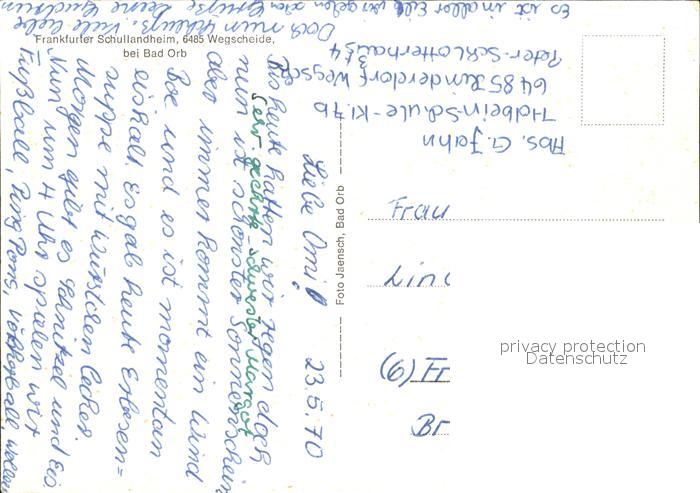 Frankfurter Schullandheim, 6485 Wegscheide,
bei Bad Orb
Liebe Omi! 23.5.70
Bis heute hatten wir Regen doch
Sehr geehrte Schwester Margot
nun ist schönster Sonnenschein
aber immer kommt ein Wind
Böe und es ist momentan
eiskalt. Es gab heute Erbsen=
suppe mit Würstchen lecker.
Morgen gibt es Schnitzel und Eis
Nun um 4 Uhr spielen wir
Fußball, Ping Pong, Völkerball
Doch nun Schluß. Viele liebe
Grüße Deine
Es ist in aller Eile
Abs. G. Jahn
Holbein-Schule-Kl. 7b
6485 Kinderdorf Wegsch.
Peter-Schlotterhaus
Foto Jaensch, Bad Orb
Frau
Lin
(6) Fr
Br
privacy protection
Datenschutz